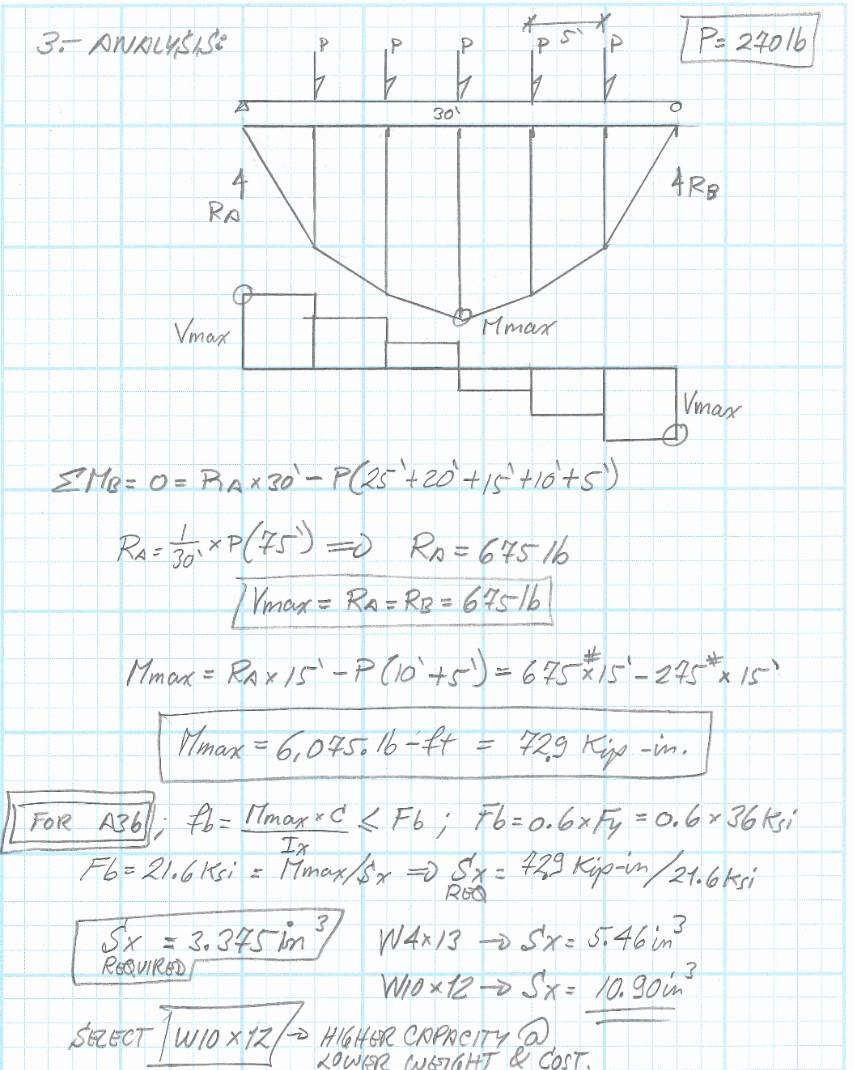 3.- ANALYSIS:
P P P P 5' P
P= 270 lb
30'
RA
RB
Mmax
Vmax
Vmax
ΣMB= 0 = RA × 30' - P(25'+20'+15'+10'+5')
RA = 1/30' × P(75') => RA = 675 lb
Vmax = RA = RB = 675 lb
Mmax = RA × 15' - P(10'+5') = 675# × 15' - 275# × 15'
Mmax = 6,075. lb-ft = 72.9 Kip-in.
FOR A36 ; fb = Mmax × C / Ix ≤ Fb ; Fb = 0.6 × Fy = 0.6 × 36 Ksi
Fb = 21.6 Ksi = Mmax/Sx => Sx REQ = 72.9 Kip-in / 21.6 Ksi
Sx REQUIRED = 3.375 in³
W4×13 → Sx = 5.46 in³
W10×12 → Sx = 10.90 in³
SELECT W10×12 → HIGHER CAPACITY @
LOWER WEIGHT & COST.